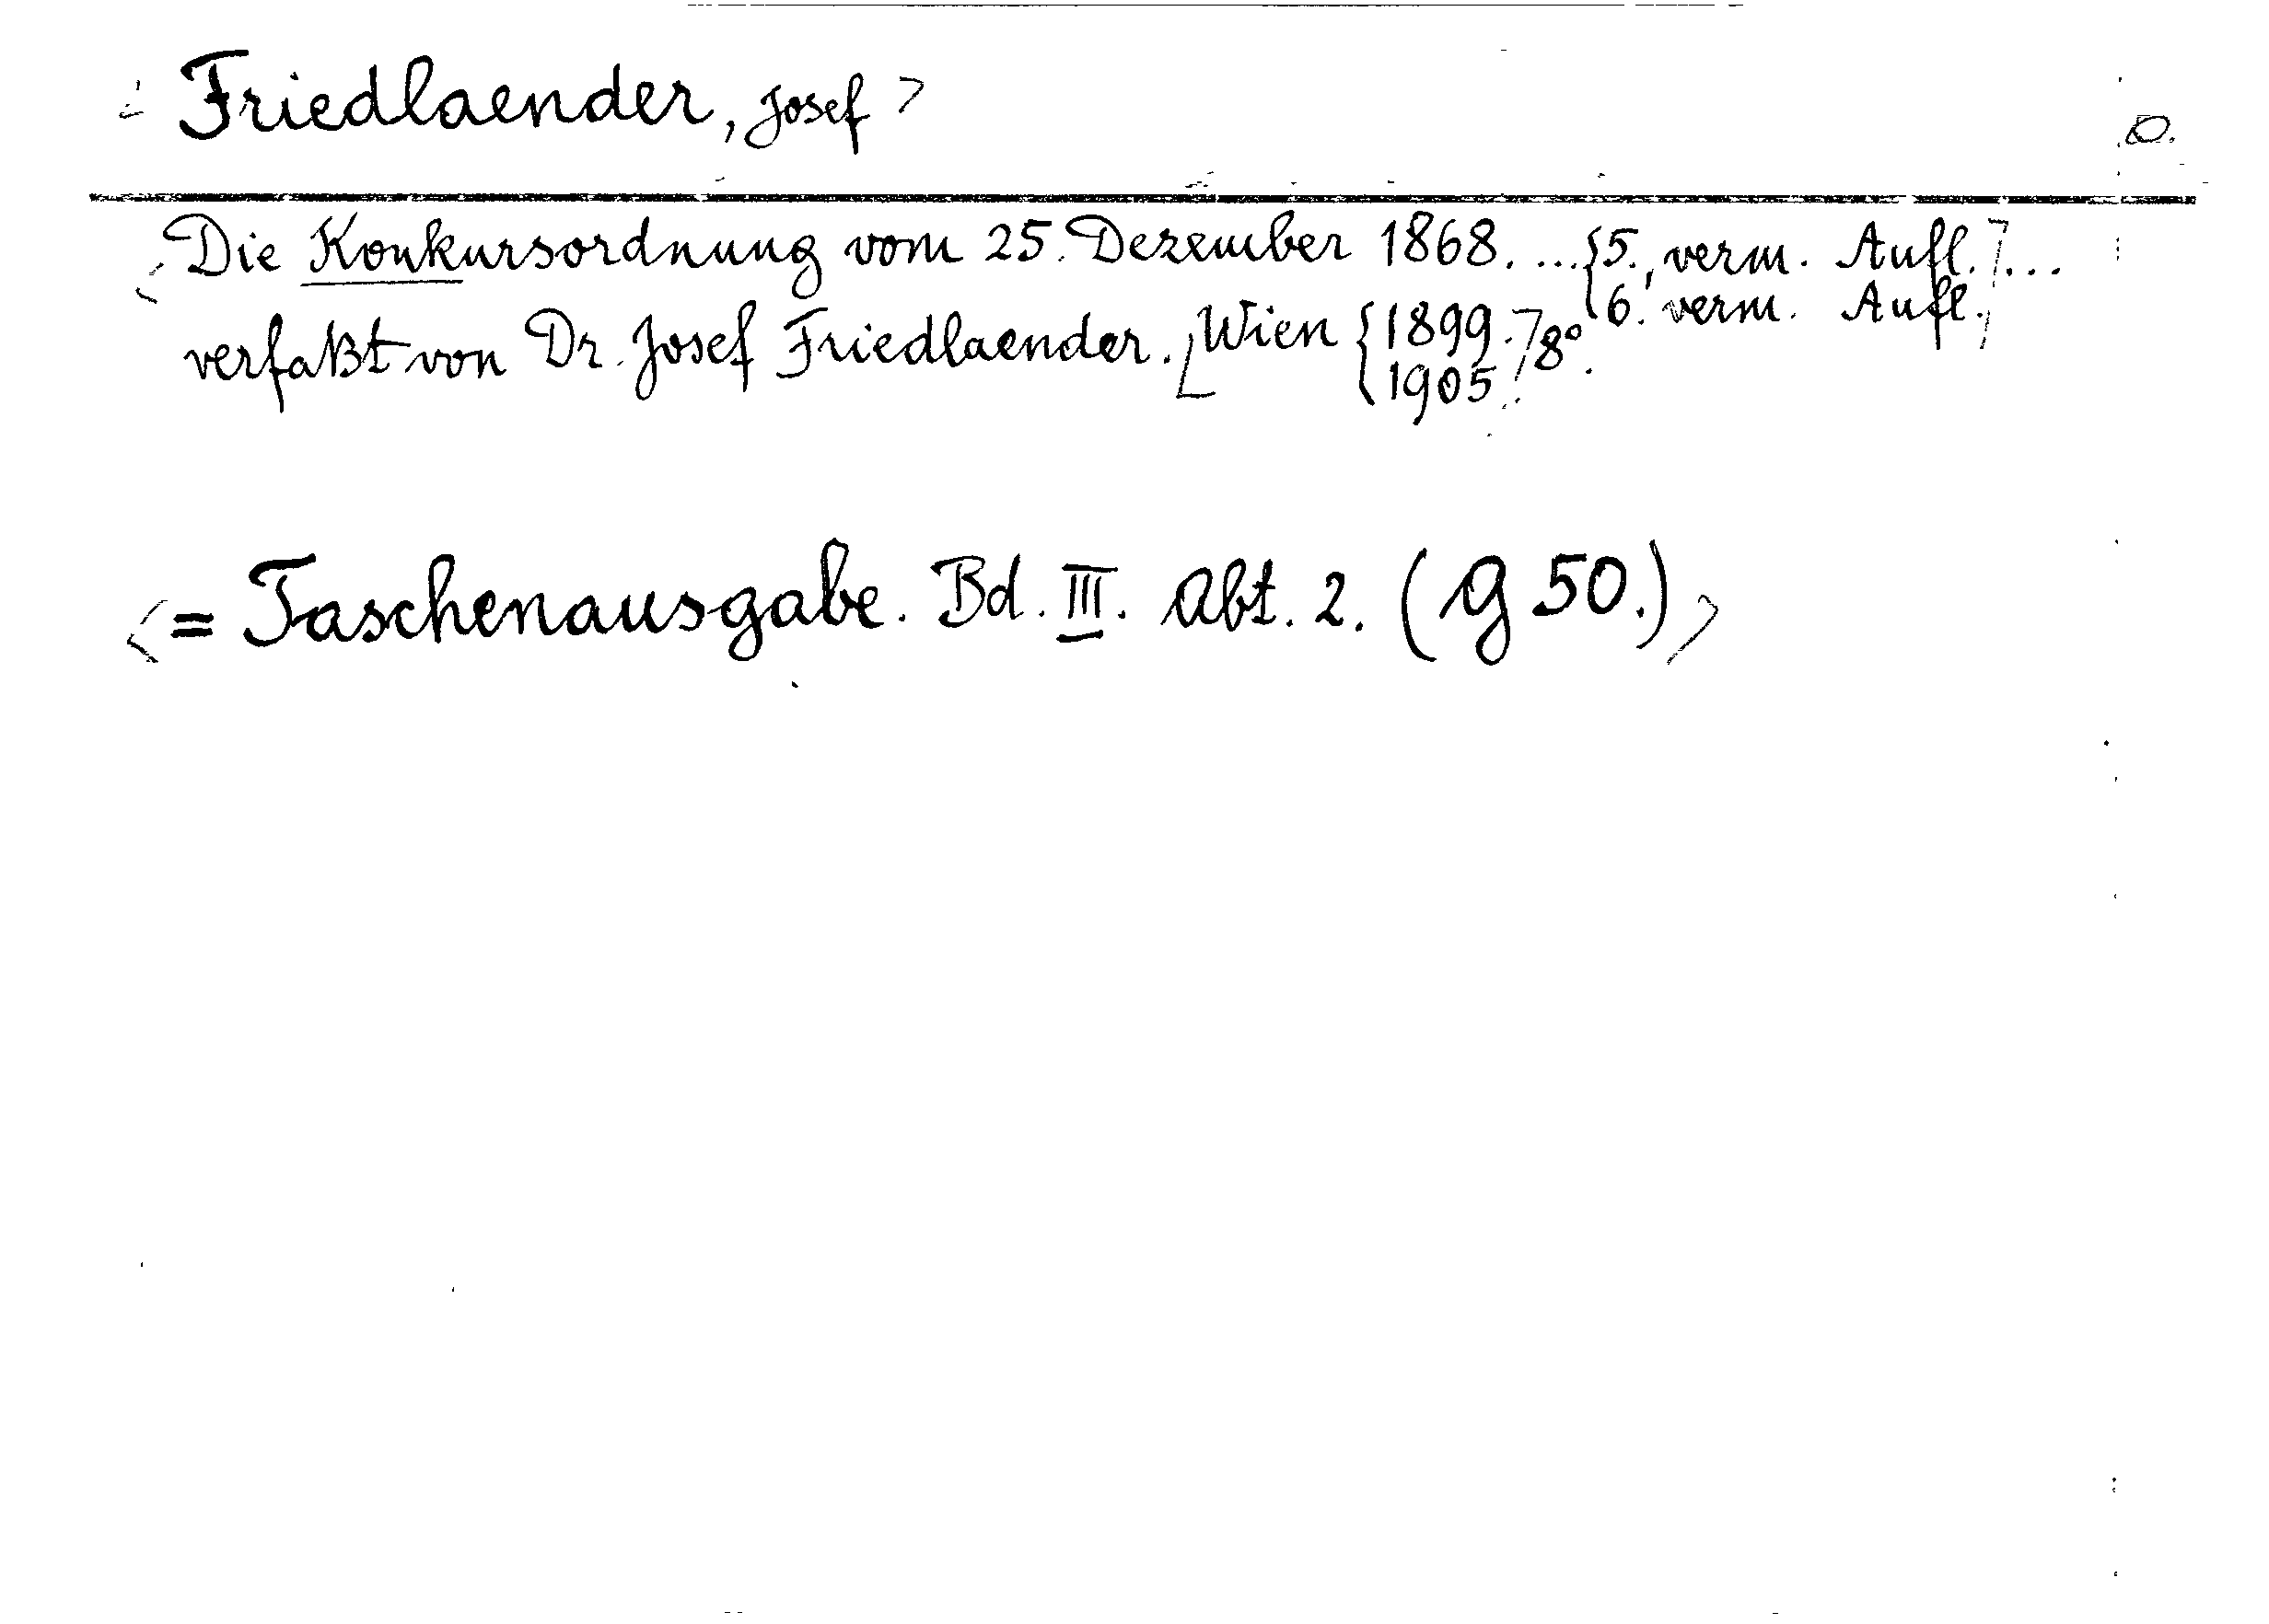 < Friedlaender, Josef >
D.
Die Konkursordnung vom 25. Dezember 1868. ... {5., verm. Aufl.]...
{6. verm. Aufl.]
verfaßt von Dr. Josef Friedlaender. [Wien {1899.] 8°.
{1905.]
<= Taschenausgabe. Bd. III. Abt. 2. (g 50.)>